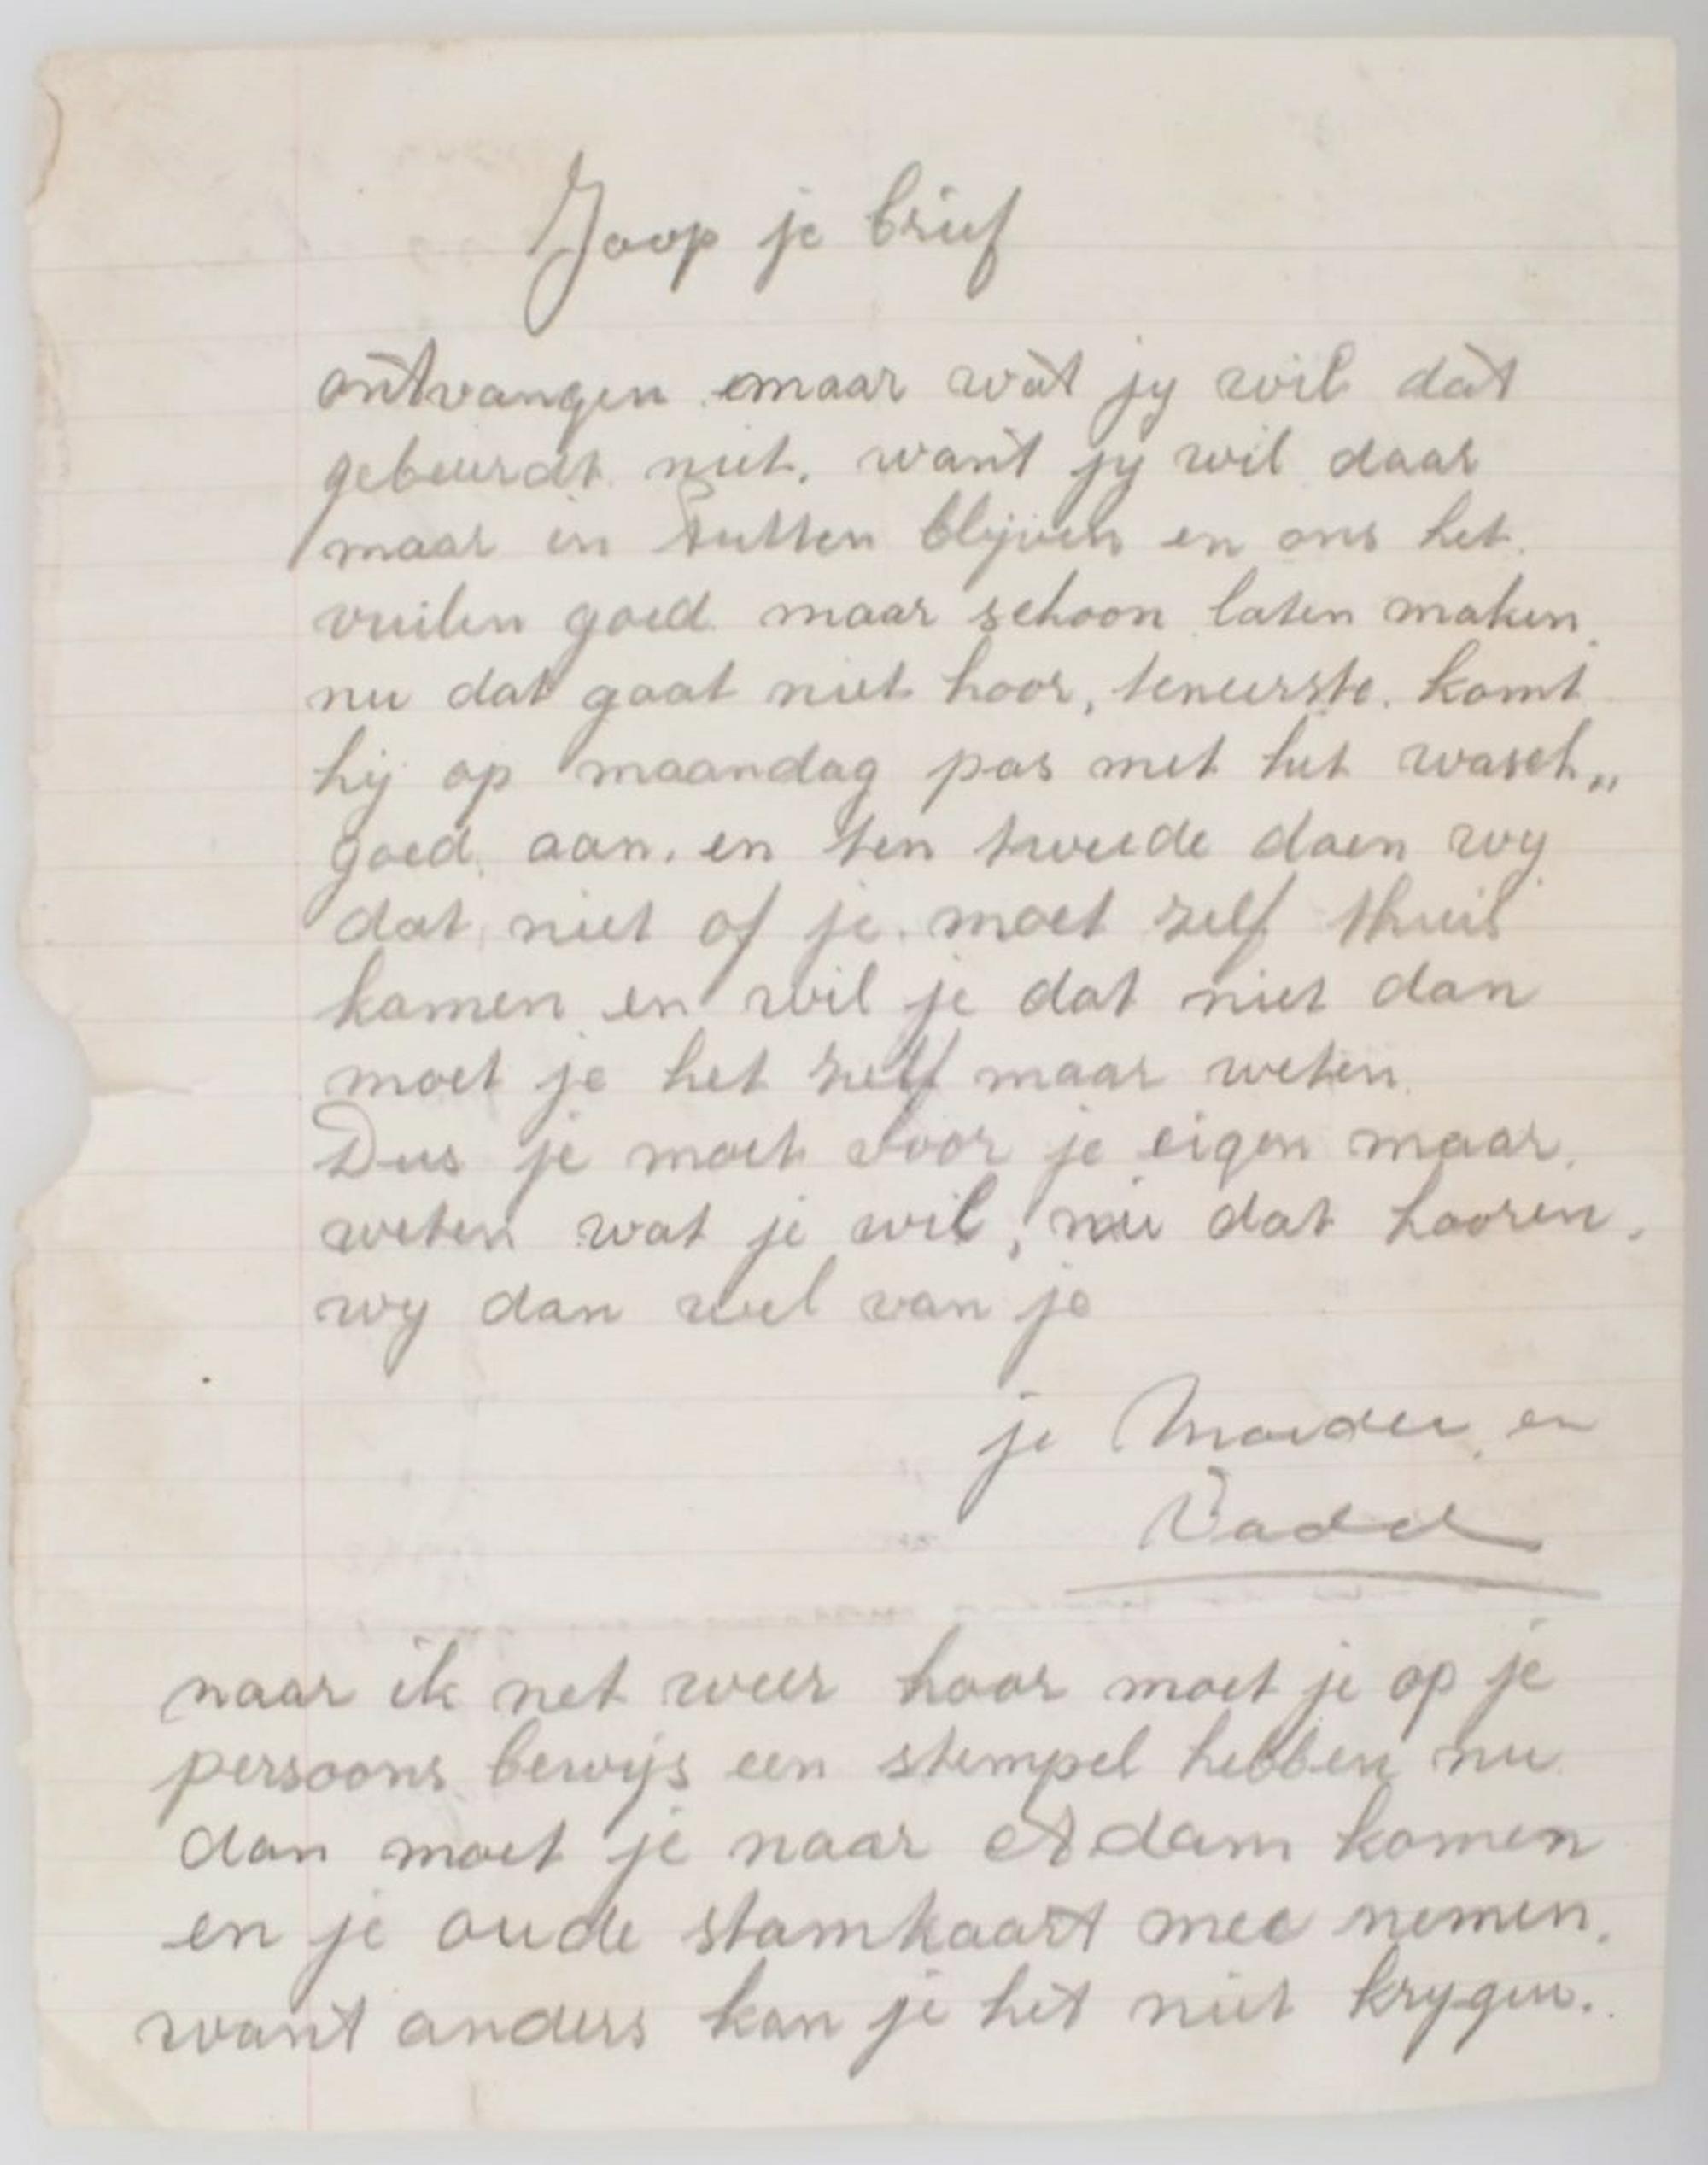 Joop je brief
ontvangen maar wat jy wil dat
gebeurdt niet. want jy wil daar
maar in Putten blijven en ons het
vuilen goed maar schoon laten maken
nu dat gaat niet hoor, teneerste. komt
hij op maandag pas met het wasch„
goed aan. en ten tweede doen wy
dat niet of je moet zelf thuis
komen en wil je dat niet dan
moet je het zelf maar weten
Dus je moet voor je eigen maar
weten wat je wil, nu dat hooren
wy dan wel van je
je Moeder en
Vader
naar ik net weer hoor moet je op je
persoons bewijs een stempel hebben nu
dan moet je naar A dam komen
en je oude stamkaart mee nemen.
want anders kan je het niet krygen.